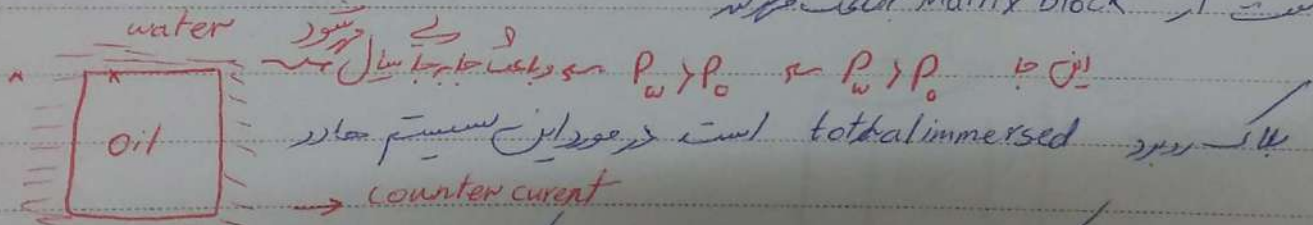 از Matrix Block
water
این جا ρw > ρo → Pw > Po → و باعث جابجا سیال می شود
Oil
بلاک روبرو tottalimmersed است در مورد این سیستم ها در
→ counter curent